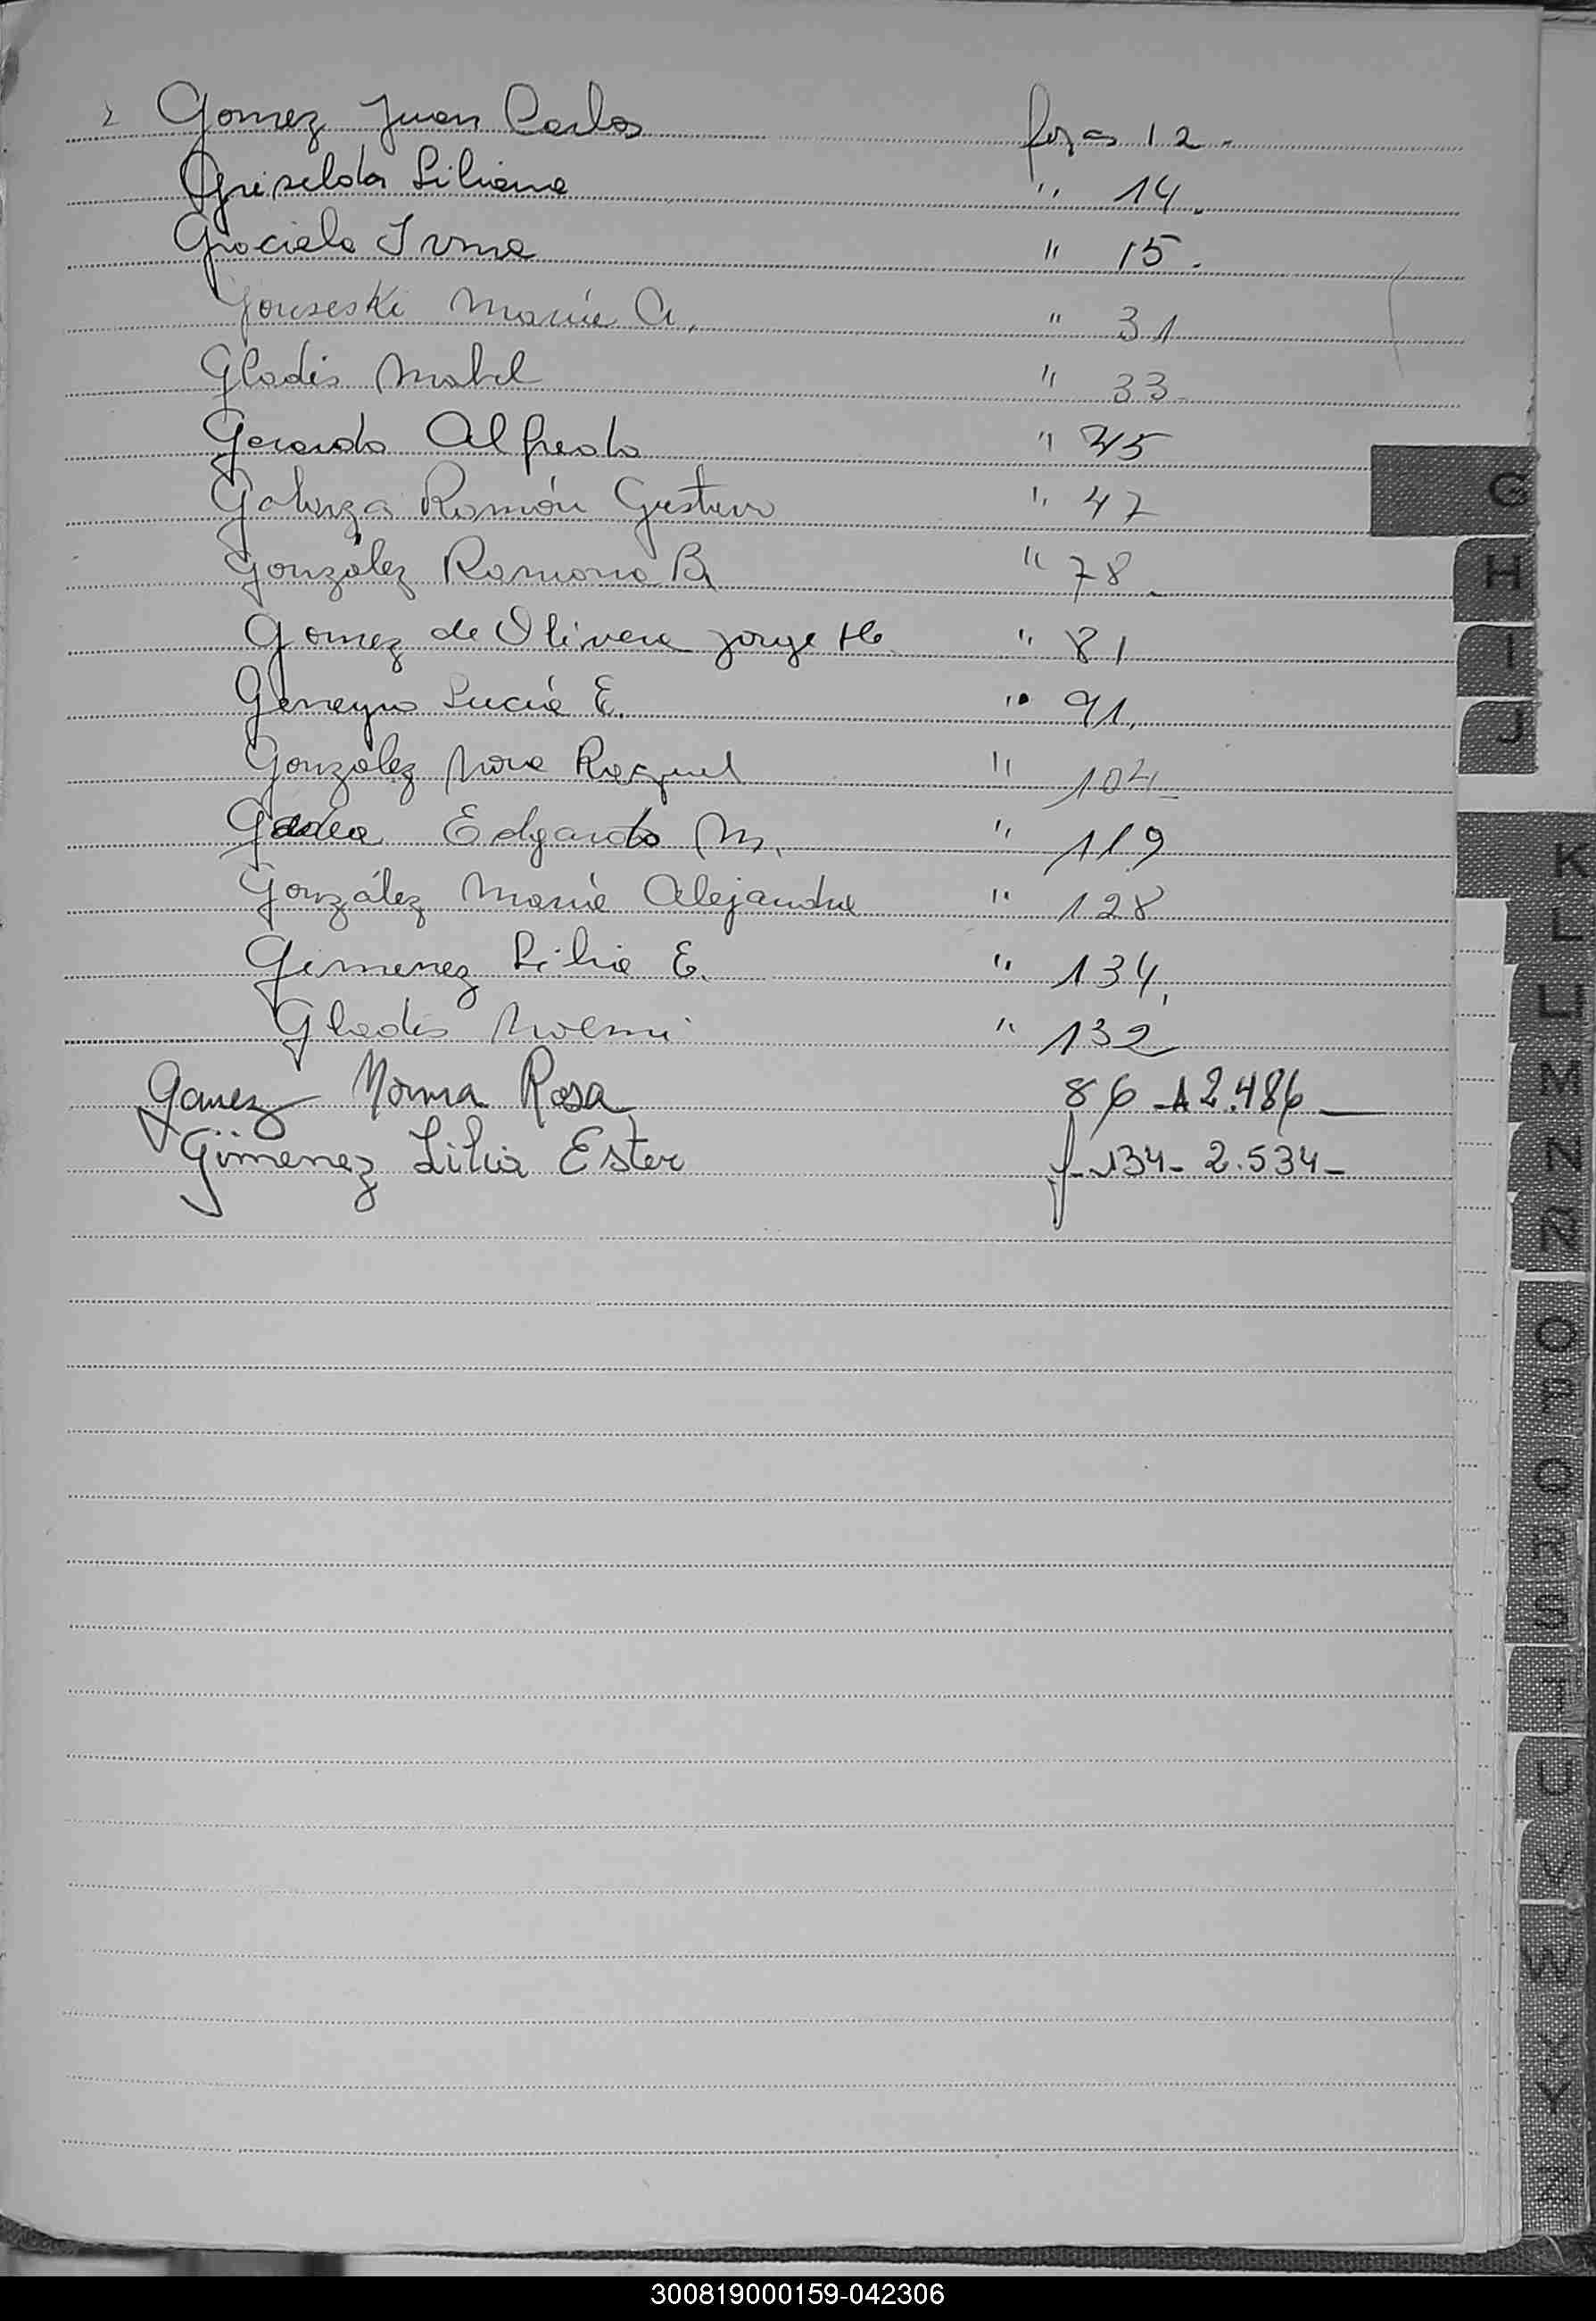 Gomez Juan Carlos fojas 12.
Griselda Liliana " 14.
Graciela Irma " 15.
María A. " 31
Gladis Mabel " 33.
Gerardo Alfredo " 45
Galarza Ramón Gustavo " 47
González Ramona B. " 78.
Gomez de Olivera Jorge H. " 81
Lucía E. " 91.
González Nora Raquel " 104
Edgardo M. " 119
González María Alejandra " 128
Gimenez Lilia E. " 134.
Gladis Noemi " 132
Gamez Norma Rosa 86 - 2.486
Gimenez Lilia Ester f- 134- 2.534-
G
H
I
J
K
L
LL
M
N
Ñ
O
P
Q
R
S
T
U
V
W
X
Y
Z
300819000159-042306